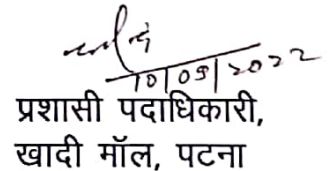 10/09/2022
प्रशासी पदाधिकारी,
खादी मॉल, पटना